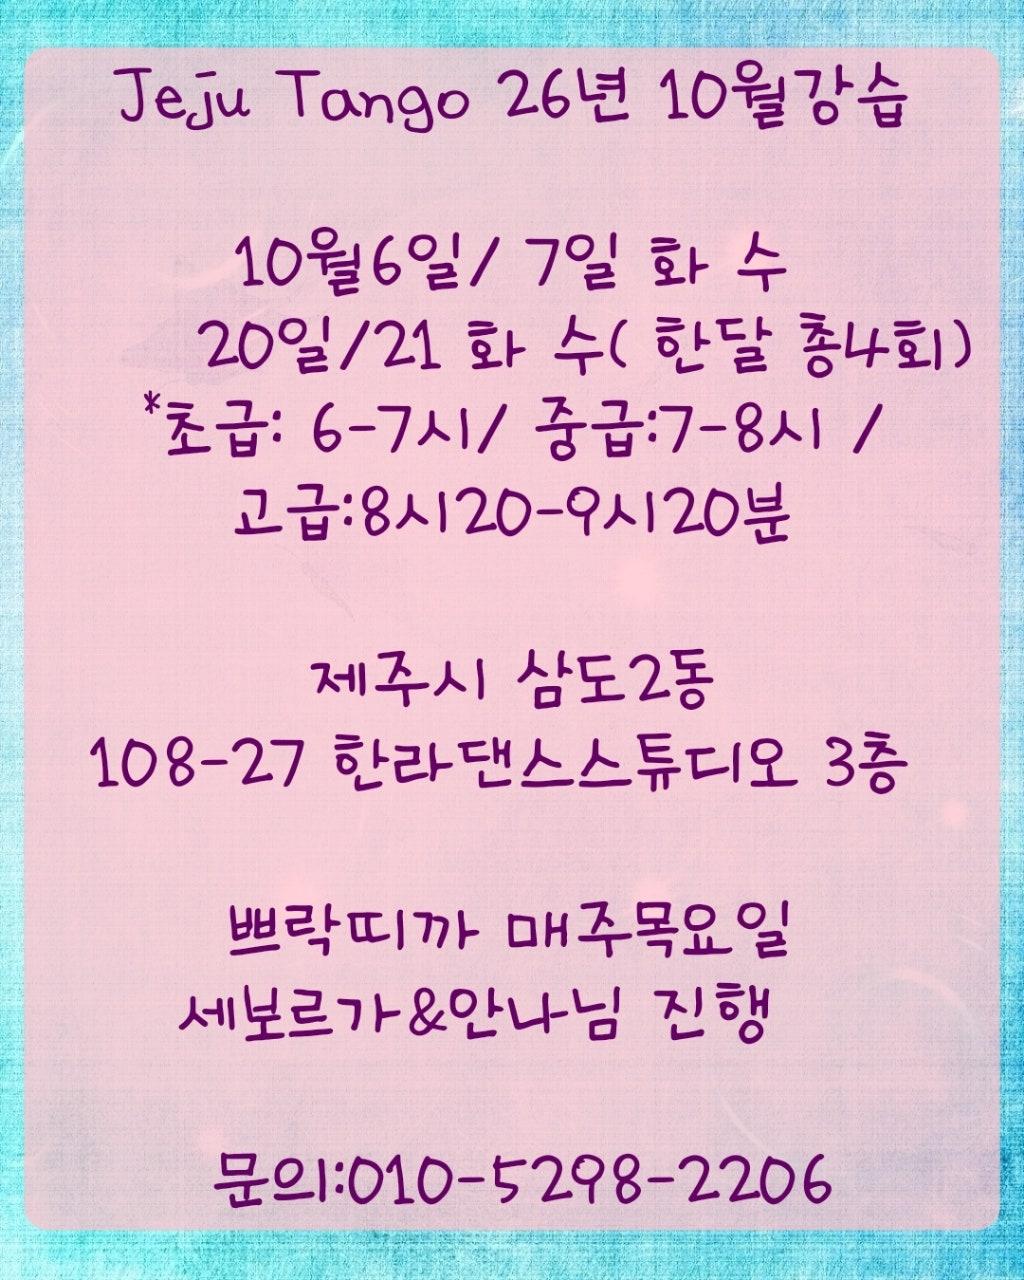 Jeju Tango 26년 10월강습
10월6일/ 7일 화 수
20일/21 화 수( 한달 총4회)
*초급: 6-7시/ 중급:7-8시 /
고급:8시20-9시20분
제주시 삼도2동
108-27 한라댄스스튜디오 3층
쁘락띠까 매주목요일
세보르가&안나님 진행
문의:010-5298-2206